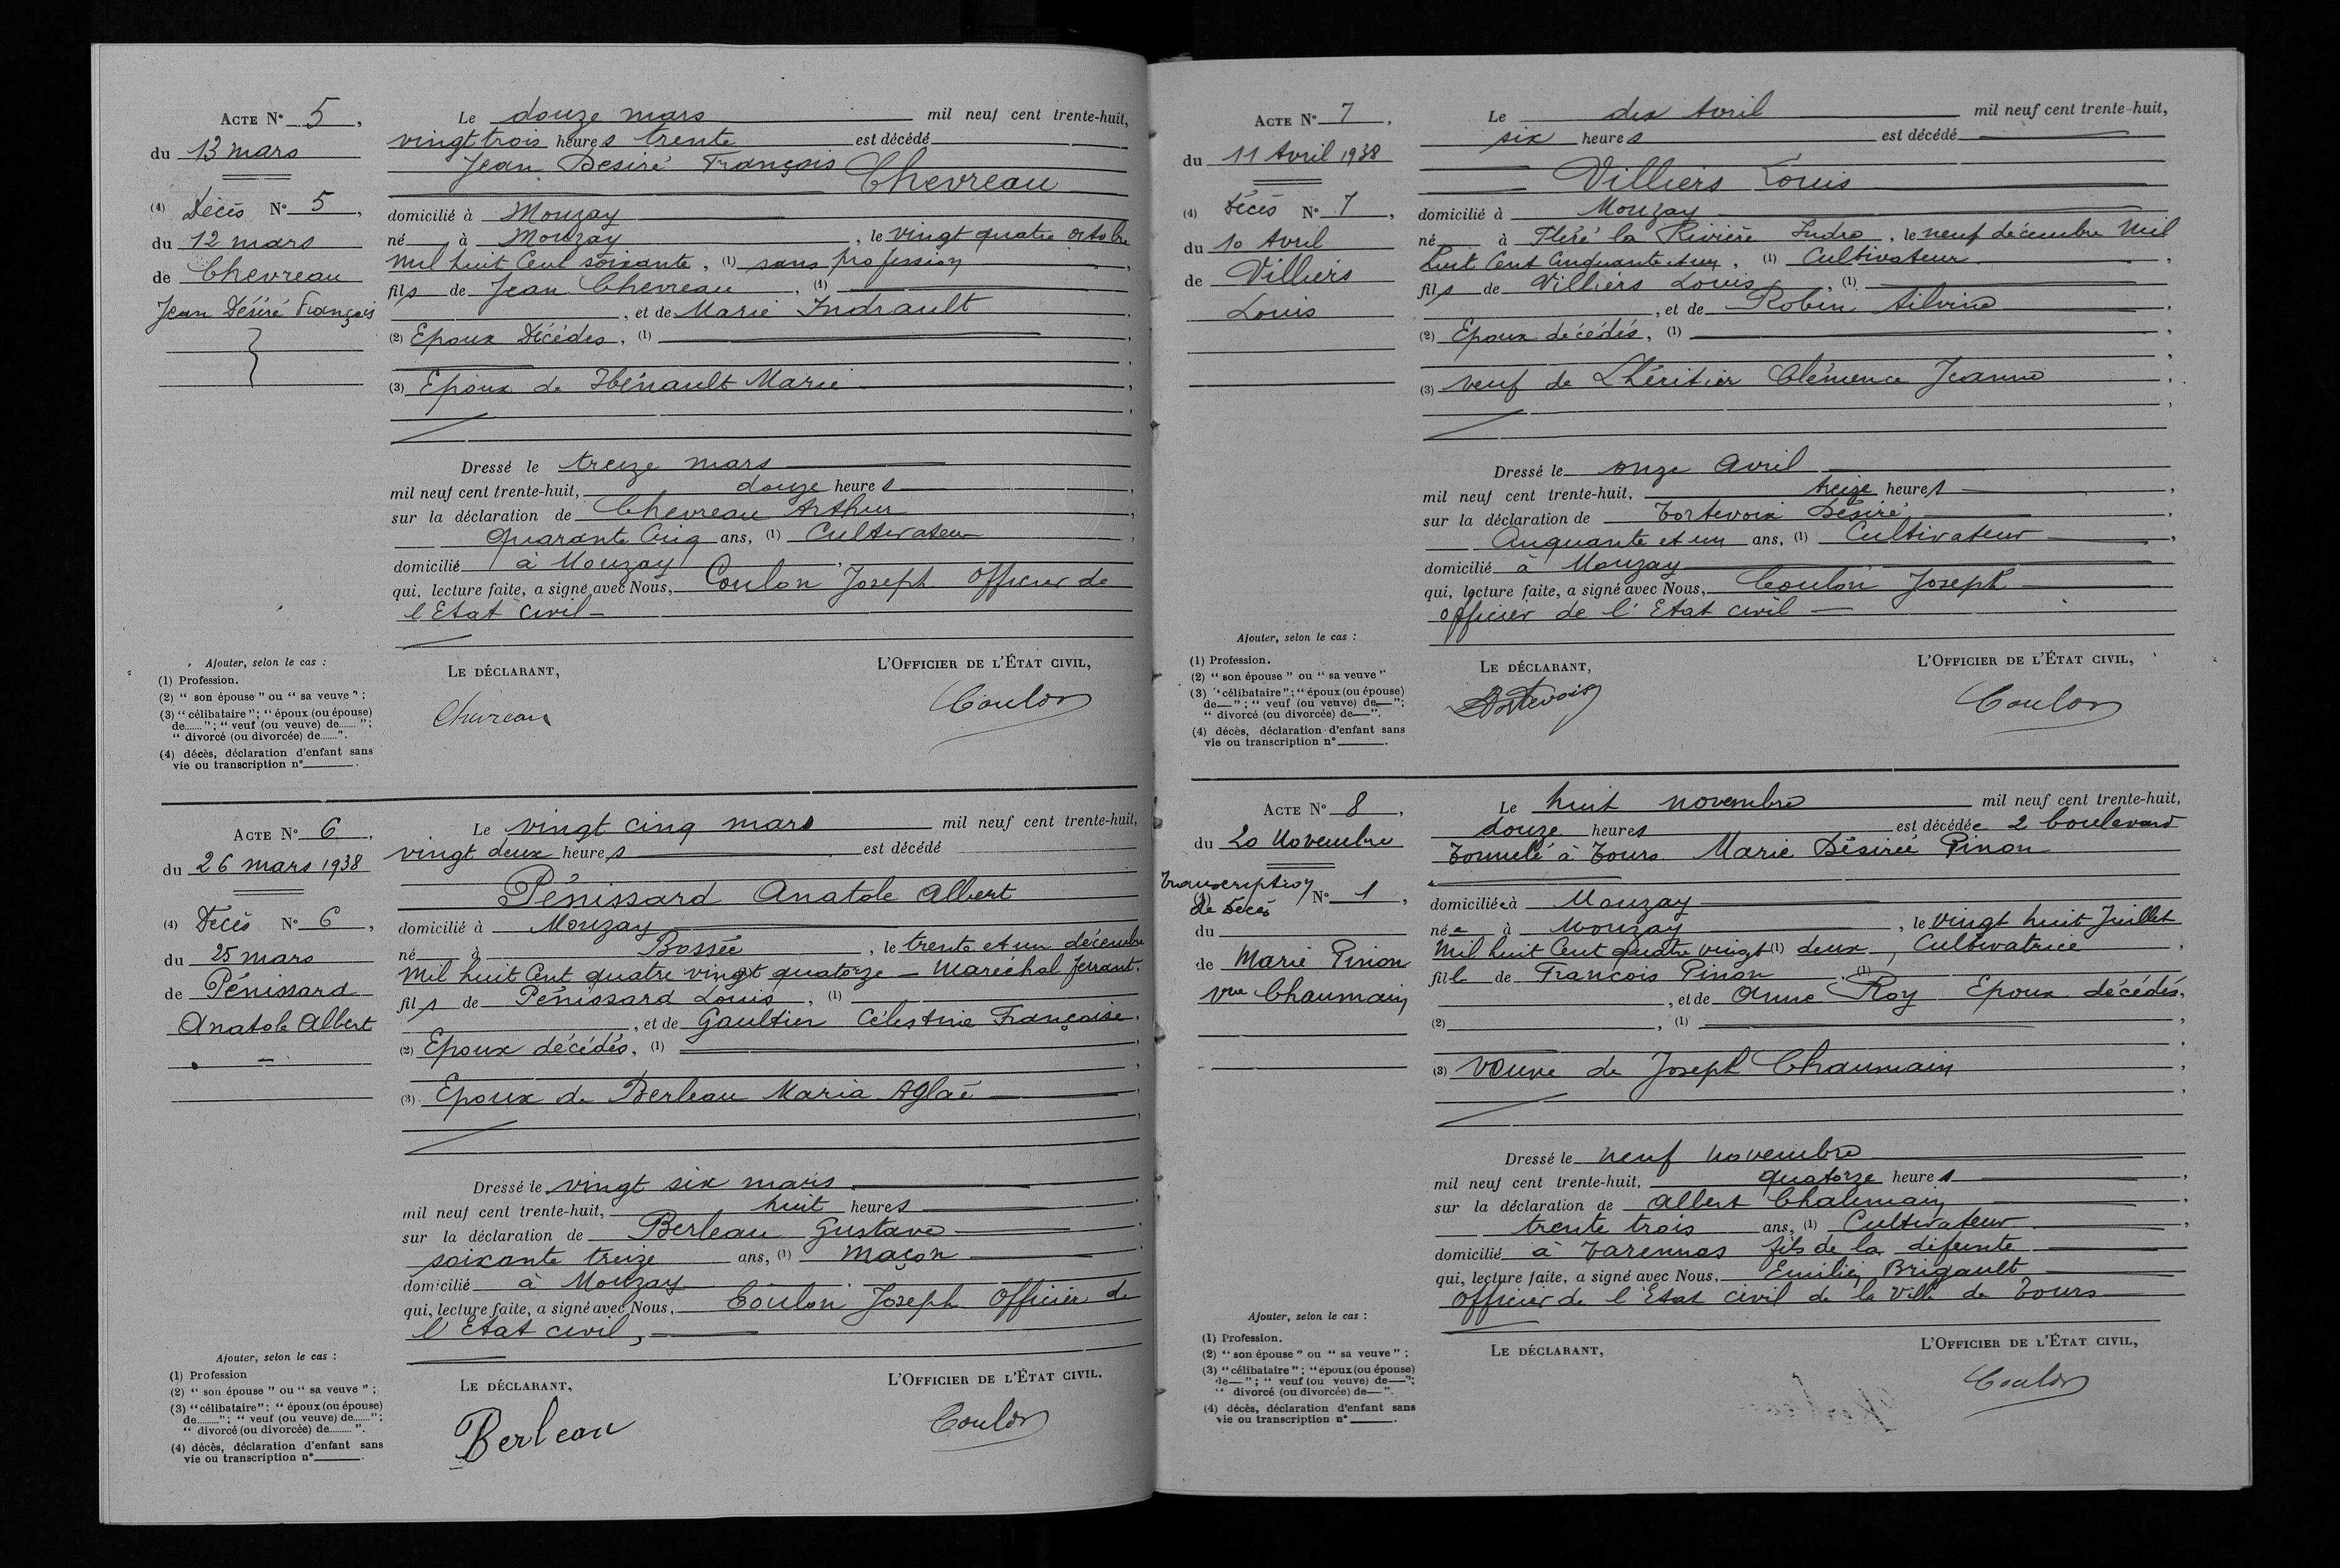 ACTE N° 5,
du 13 mars
(4) Décès N° 5,
du 12 mars
de Chevreau
Jean Désiré François
Le douze mars mil neuf cent trente-huit,
vingt trois heures trente est décédé
Jean Desiré François Chevreau
domicilié à Mouzay
né à Mouzay, le vingt quatre octobre
mil huit Cent soixante, (1) sans profession,
fils de Jean Chevreau, (1)
, et de Marie Indrault
(2) Epoux Décédés, (1)
(3) Epoux de Thénault Marie
Dressé le treize mars
mil neuf cent trente-huit, douze heures,
sur la déclaration de Chevreau Arthur,
quarante Cinq ans, (1) Cultivateur,
domicilié à Mouzay,
qui, lecture faite, a signé avec Nous, Coulon Joseph Officier de
l'Etat civil
Ajouter, selon le cas :
(1) Profession.
(2) “ son épouse ” ou “ sa veuve ” ;
(3) “ célibataire ” ; “ époux (ou épouse)
de...... ” ; “ veuf (ou veuve) de...... ” ;
“ divorcé (ou divorcée) de...... ”.
(4) décès, déclaration d'enfant sans
vie ou transcription n°______.
LE DÉCLARANT,
Chevreau
L'OFFICIER DE L'ÉTAT CIVIL,
Coulon
ACTE N° 6,
du 26 mars 1938
(4) Décès N° 6,
du 25 mars
de Pénissard
Anatole Albert
Le vingt cinq mars mil neuf cent trente-huit,
vingt deux heures est décédé
Pénissard Anatole Albert
domicilié à Mouzay
né à Bossée, le trente et un décembre
mil huit Cent quatre vingt quatorze – Maréchal ferrant.
fils de Pénissard Louis, (1)
, et de Gaultier Célestine Françoise,
(2) Epoux décédés, (1)
(3) Epoux de Berleau Maria Aglaé
Dressé le vingt six mars
mil neuf cent trente-huit, huit heures
sur la déclaration de Berleau Gustave
soixante treize ans, (1) maçon
domicilié à Mouzay
qui, lecture faite, a signé avec Nous, Coulon Joseph Officier de
l'Etat civil,
Ajouter, selon le cas :
(1) Profession
(2) “ son épouse ” ou “ sa veuve ” ;
(3) “célibataire” ; “ époux (ou épouse)
de........” ; “ veuf (ou veuve) de...... ” ;
“ divorcé (ou divorcée) de........ ”.
(4) décès, déclaration d'enfant sans
vie ou transcription n°______.
LE DÉCLARANT,
Berleau
L'OFFICIER DE L'ÉTAT CIVIL.
Coulon
ACTE N° 7,
du 11 Avril 1938
(4) Décès N° 7,
du 10 Avril
de Villiers
Louis
Le dix Avril mil neuf cent trente-huit,
six heures est décédé
Villiers Louis
domicilié à Mouzay
né à Fléré la Rivière Indre, le neuf décembre Mil
huit Cent Cinquante et un, (1) Cultivateur,
fils de Villiers Louis, (1)
, et de Robin Silvine,
(2) Epoux décédés, (1)
(3) veuf de L'héritier Clémence Jeanne,
Dressé le onze avril
mil neuf cent trente-huit, treize heures,
sur la déclaration de Tortevoix Désiré,
Cinquante et un ans, (1) Cultivateur,
domicilié à Mouzay
qui, lecture faite, a signé avec Nous, Coulon Joseph
officier de l'Etat civil
Ajouter, selon le cas :
(1) Profession.
(2) “ son épouse ” ou “ sa veuve ”
(3) “célibataire” ; “époux (ou épouse)
de— ” ; “ veuf (ou veuve) de— ” ;
“ divorcé (ou divorcée) de— ”.
(4) décès, déclaration d'enfant sans
vie ou transcription n°______.
LE DÉCLARANT,
Tortevoix
L'OFFICIER DE L'ÉTAT CIVIL,
Coulon
ACTE N° 8,
du 20 Novembre
Transcription N° 1,
(4) de Décès
du
de Marie Pinon
Vve Chaumain
Le huit novembre mil neuf cent trente-huit,
douze heures est décédée 2 boulevard
Tonnelé à Tours Marie Désirée Pinon
domiciliée à Mouzay
née à Mouzay, le vingt huit Juillet
Mil huit Cent quatre vingt (1) deux, Cultivatrice,
fille de François Pinon, (1)
, et de Anne Roy Epoux décédés,
(2) , (1)
(3) Veuve de Joseph Chaumain
Dressé le neuf novembre
mil neuf cent trente-huit, quatorze heures,
sur la déclaration de Albert Chaumain,
trente trois ans, (1) Cultivateur,
domicilié à Varennes fils de la défunte
qui, lecture faite, a signé avec Nous, Emilien Brigault
officier de l'Etat civil de la Ville de Tours
Ajouter, selon le cas :
(1) Profession.
(2) “ son épouse ” ou “ sa veuve ” ;
(3) “célibataire” ; “époux (ou épouse)
de— ” ; “ veuf (ou veuve) de— ” ;
“ divorcé (ou divorcée) de— ”.
(4) décès, déclaration d'enfant sans
vie ou transcription n°______.
LE DÉCLARANT,
L'OFFICIER DE L'ÉTAT CIVIL,
Coulon